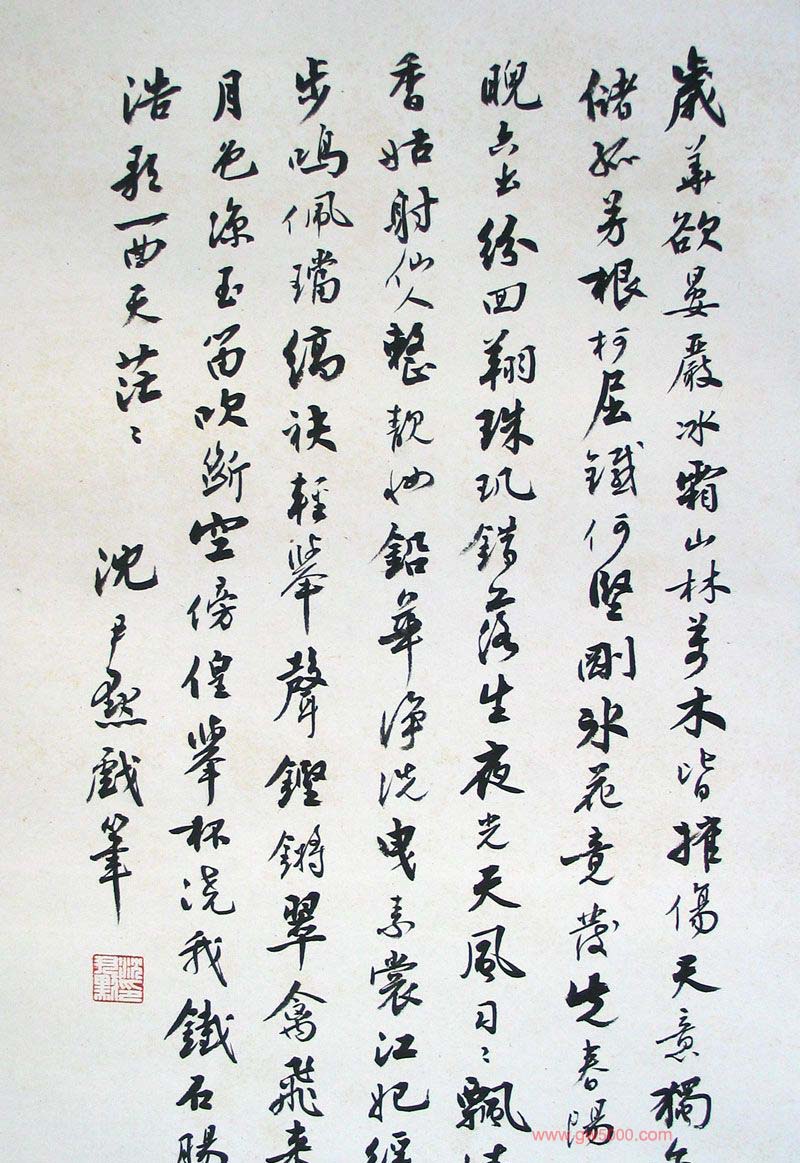 歲華欲晏嚴冰霜山林萬木皆摧傷天意獨
儲孤芳根柯屈鐵何堅剛冰花竟發先春陽
睨六出紛回翔珠璣錯落生夜光天風習〻飄
香姑射仙人整靚妝鉛華淨洗曳素裳江妃
步鳴佩璫縞袂輕舉聲鏗鏘翠禽飛來
月色涼玉笛吹斷空傍徨舉杯澆我鐵石腸
浩歌一曲天茫〻
沈尹默戲筆